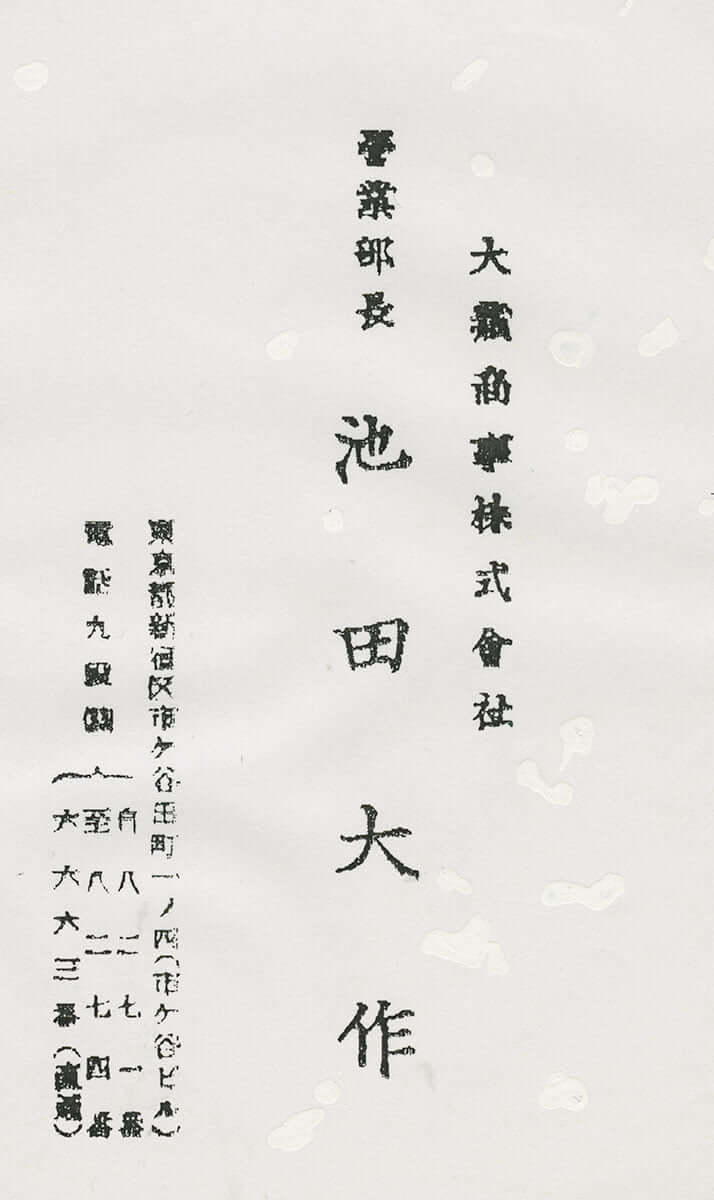 大蔵商事株式會社
營業部長 池田大作
東京都新宿区市ケ谷田町一ノ四(市ケ谷ビル)
電話九段
自八二七一番
至八二七四番
六六六三番(直通)